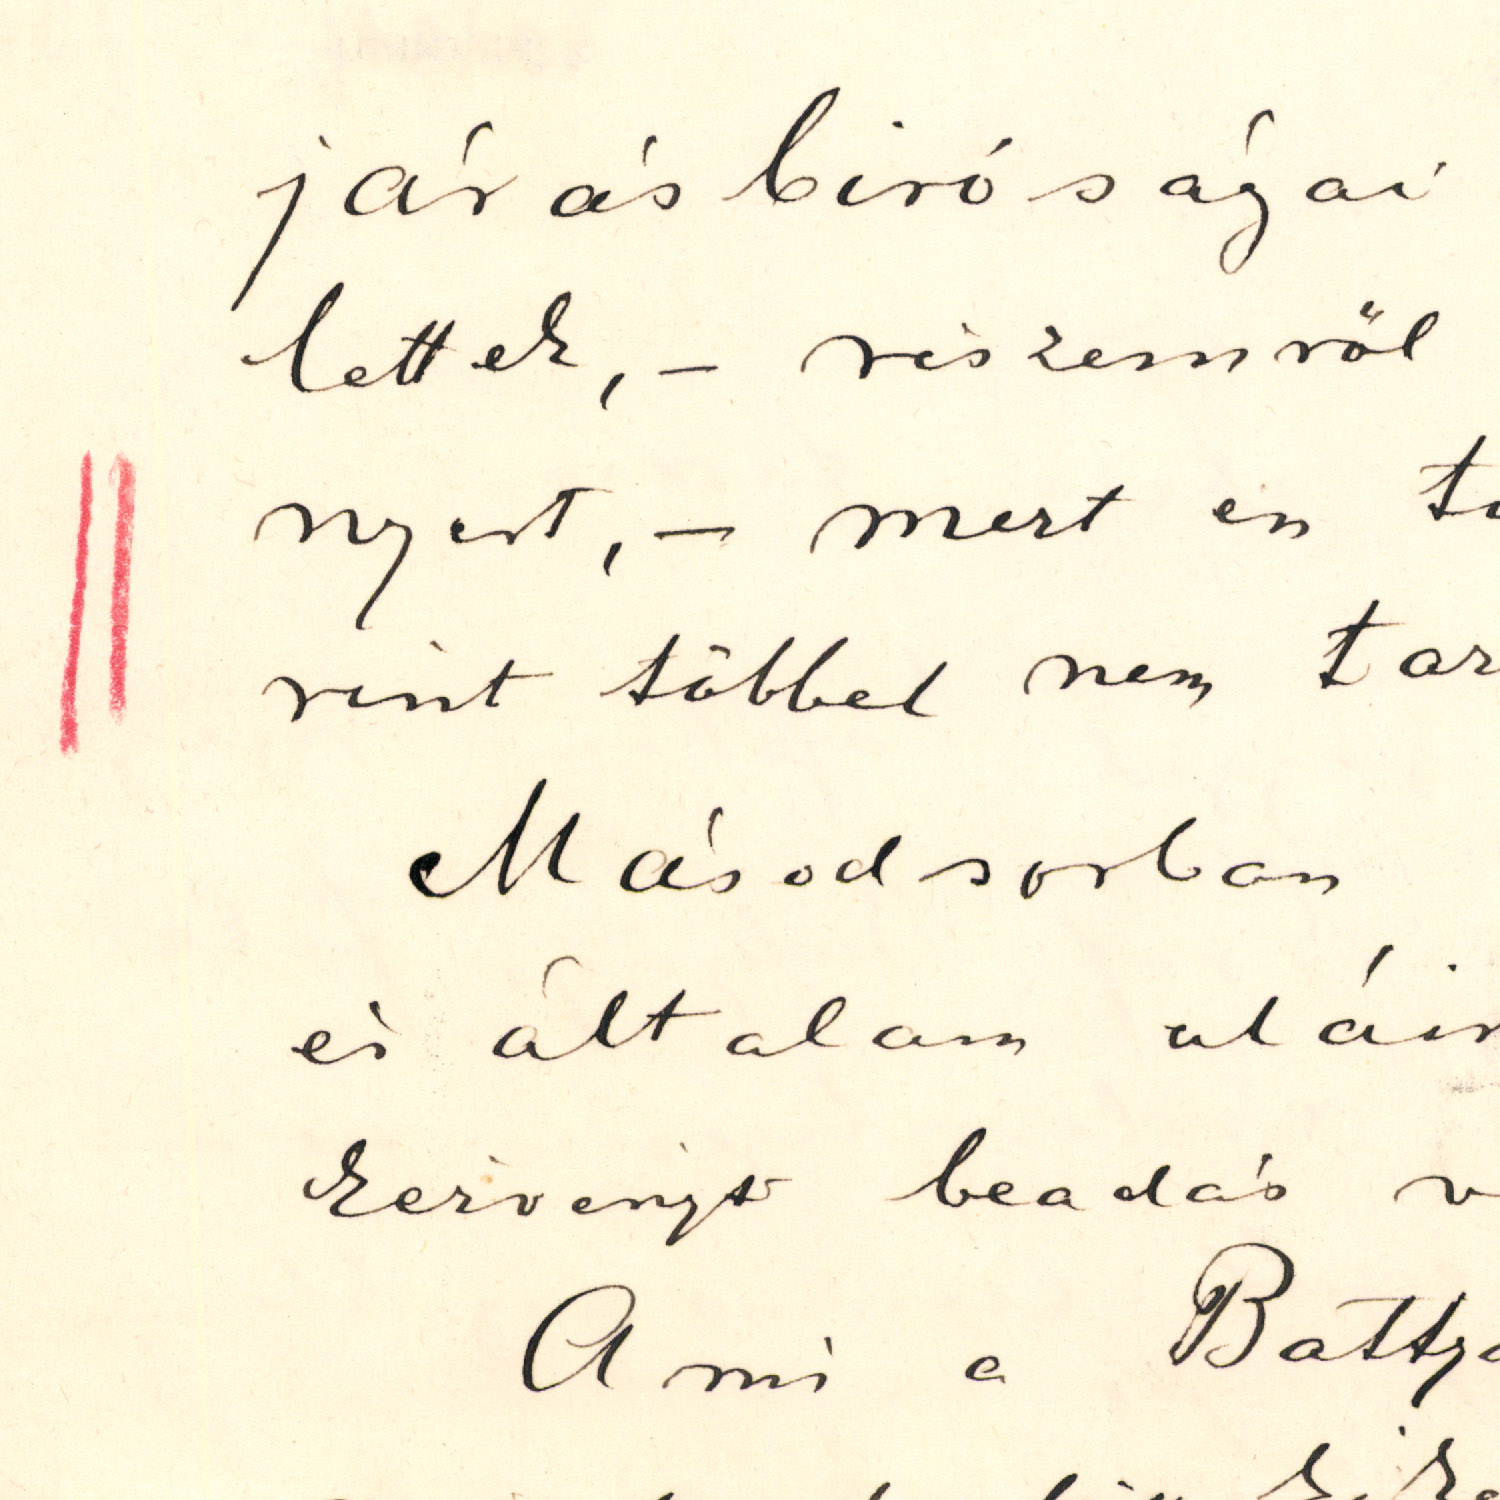 járásbiróságai
lettek,– részemről
nyert,– mert én
rint többel nem
Másodsorban
és általam aláir
kérvényt beadás
Ami a Batty